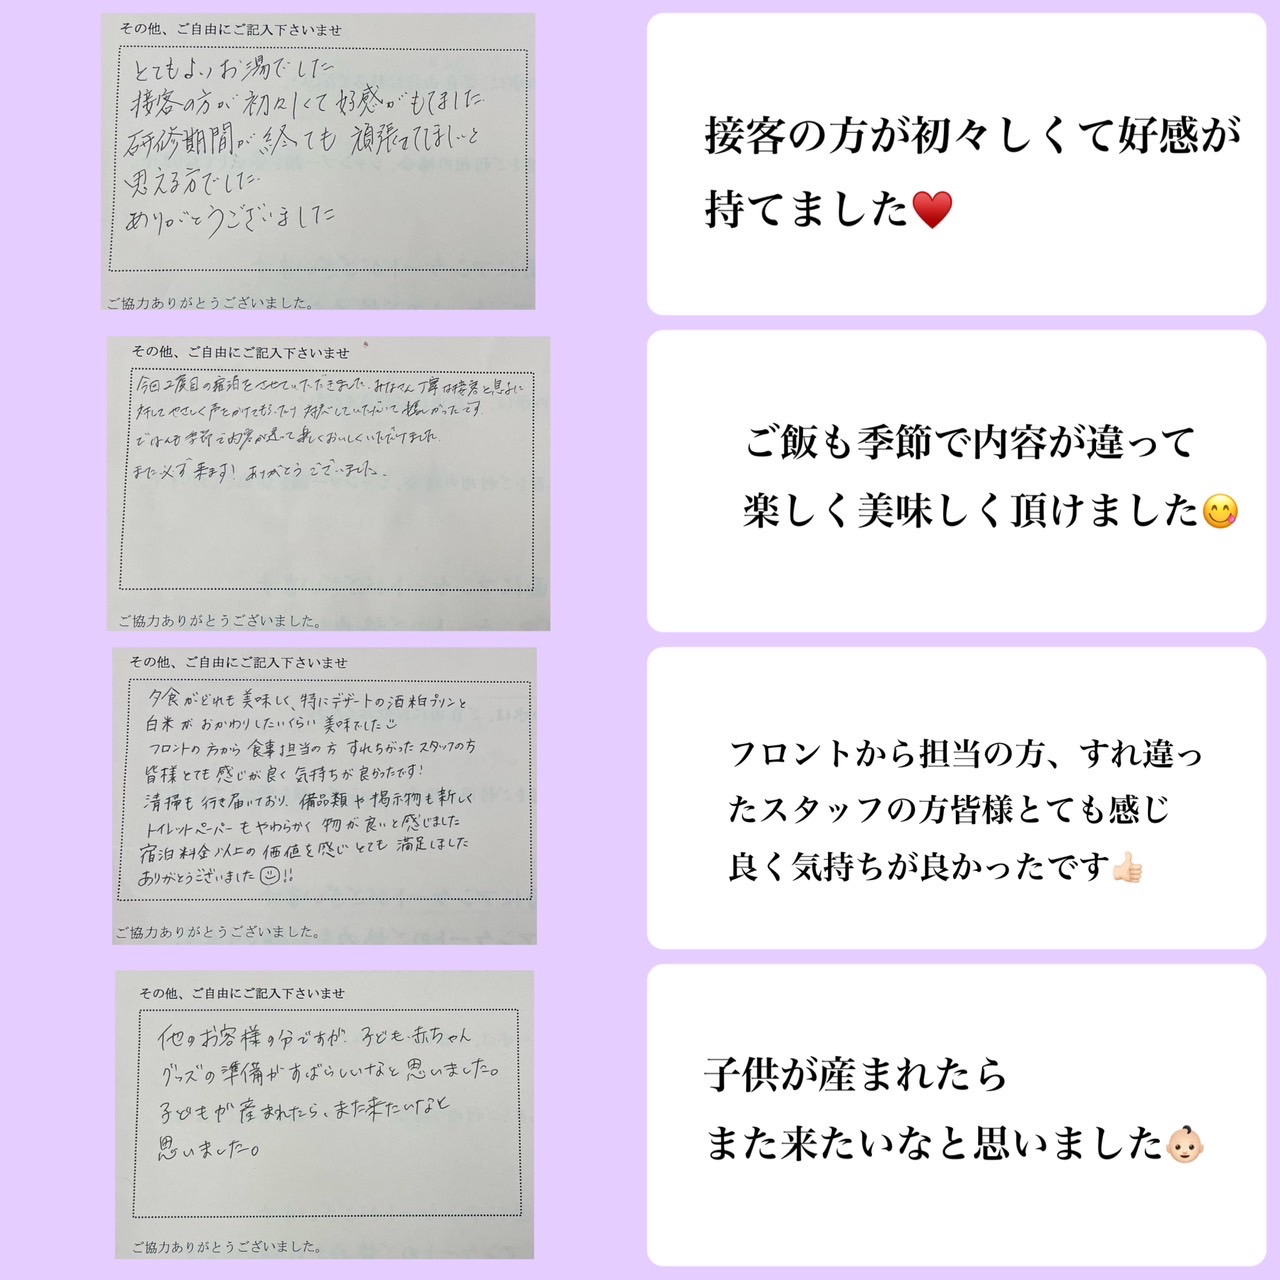 その他、ご自由にご記入下さいませ
とてもよいお湯でした
接客の方が初々しくて好感がもてました
研修期間が終っても頑張ってほしいと
思える方でした
ありがとうございました
ご協力ありがとうございました。
接客の方が初々しくて好感が
持てました♥️
その他、ご自由にご記入下さいませ
今回2度目の宿泊をさせていただきました。みなさん丁寧な接客と息子に
対してやさしく声をかけてもらったり対応していただいて嬉しかったです。
ごはんも季節で内容が違って楽しくおいしくいただけました。
また必ず来ます!ありがとうございました。
ご協力ありがとうございました。
ご飯も季節で内容が違って
楽しく美味しく頂けました😋
その他、ご自由にご記入下さいませ
夕食がどれも美味しく、特にデザートの酒粕プリンと
白米がおかわりしたいくらい美味でした
フロントの方から食事担当の方すれちがったスタッフの方
皆様とても感じが良く気持ちが良かったです!
清掃も行き届いており、備品類や掲示物も新しく
トイレットペーパーもやわらかく物が良いと感じました
宿泊料金以上の価値を感じとても満足しました
ありがとうございました☺!!
ご協力ありがとうございました。
フロントから担当の方、すれ違っ
たスタッフの方皆様とても感じ
良く気持ちが良かったです👍🏻
その他、ご自由にご記入下さいませ
他のお客様の分ですが、子ども・赤ちゃん
グッズの準備がすばらしいなと思いました。
子どもが産まれたら、また来たいなと
思いました。
ご協力ありがとうございました。
子供が産まれたら
また来たいなと思いました👶🏻